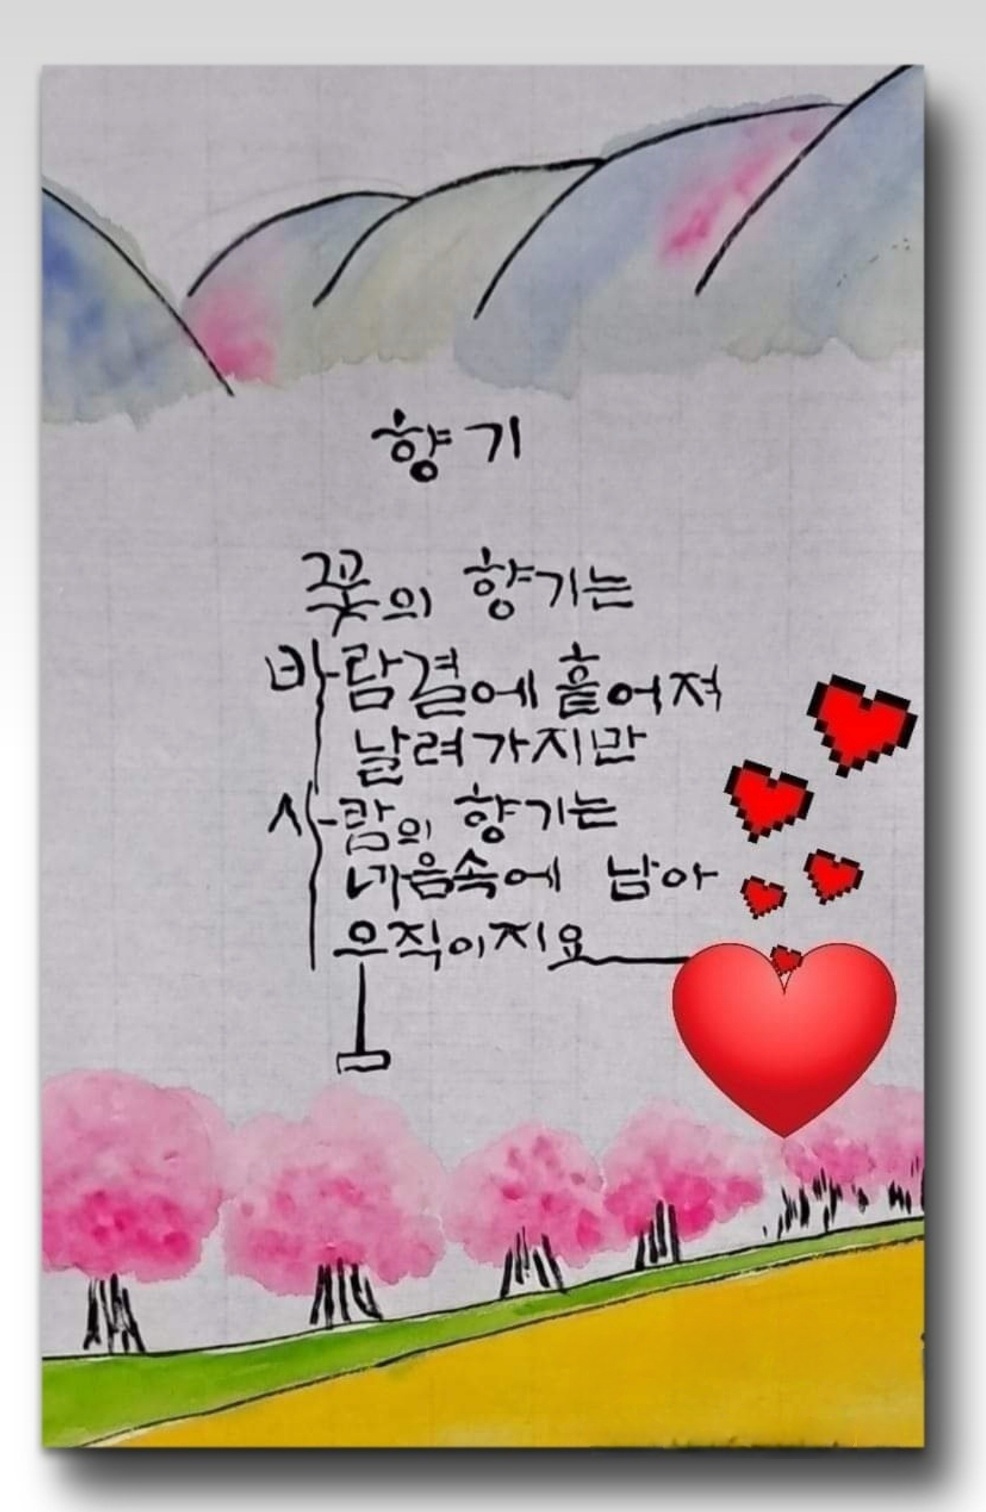 향기
꽃의 향기는
바람결에 흩어져
날려가지만
사람의 향기는
마음속에 남아
움직이지요